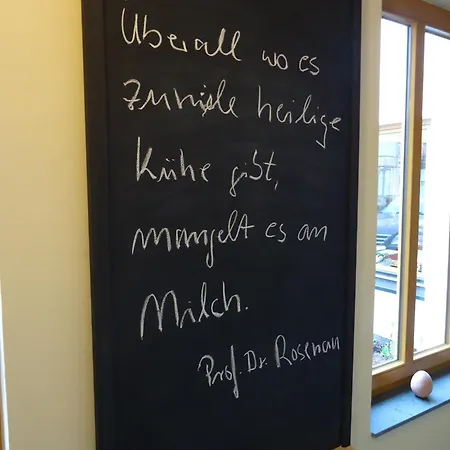 Überall wo es
zuviele heilige
Kühe gibt,
mangelt es an
Milch.
Prof. Dr. Rosenau